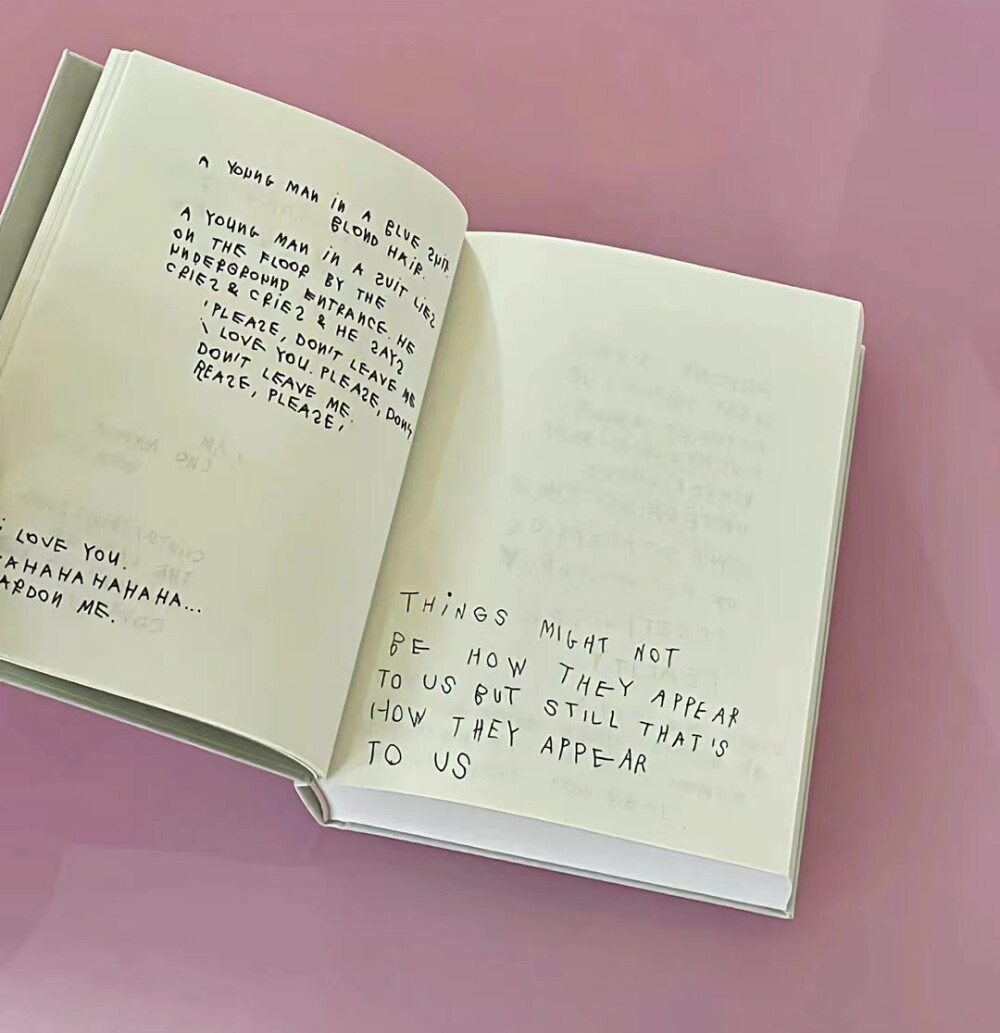 A YOUNG MAN iN A BLUE SUIT.
BLOND HAIR.
A YOUNG MAN iN A SUIT LIES
ON THE FLOOR BY THE
UNDERGROUND ENTRANCE. HE
CRIES & CRIES & HE SAYS
'PLEASE, DON'T LEAVE ME
I LOVE YOU. PLEASE, DON'T
DON'T LEAVE ME.
PLEASE, PLEASE,'
LOVE YOU.
AHAHAHAHAHA...
ARDON ME.
THiNGS MIGHT NOT
BE HOW THEY APPEAR
TO US BUT STILL THAT'S
HOW THEY APPEAR
TO US